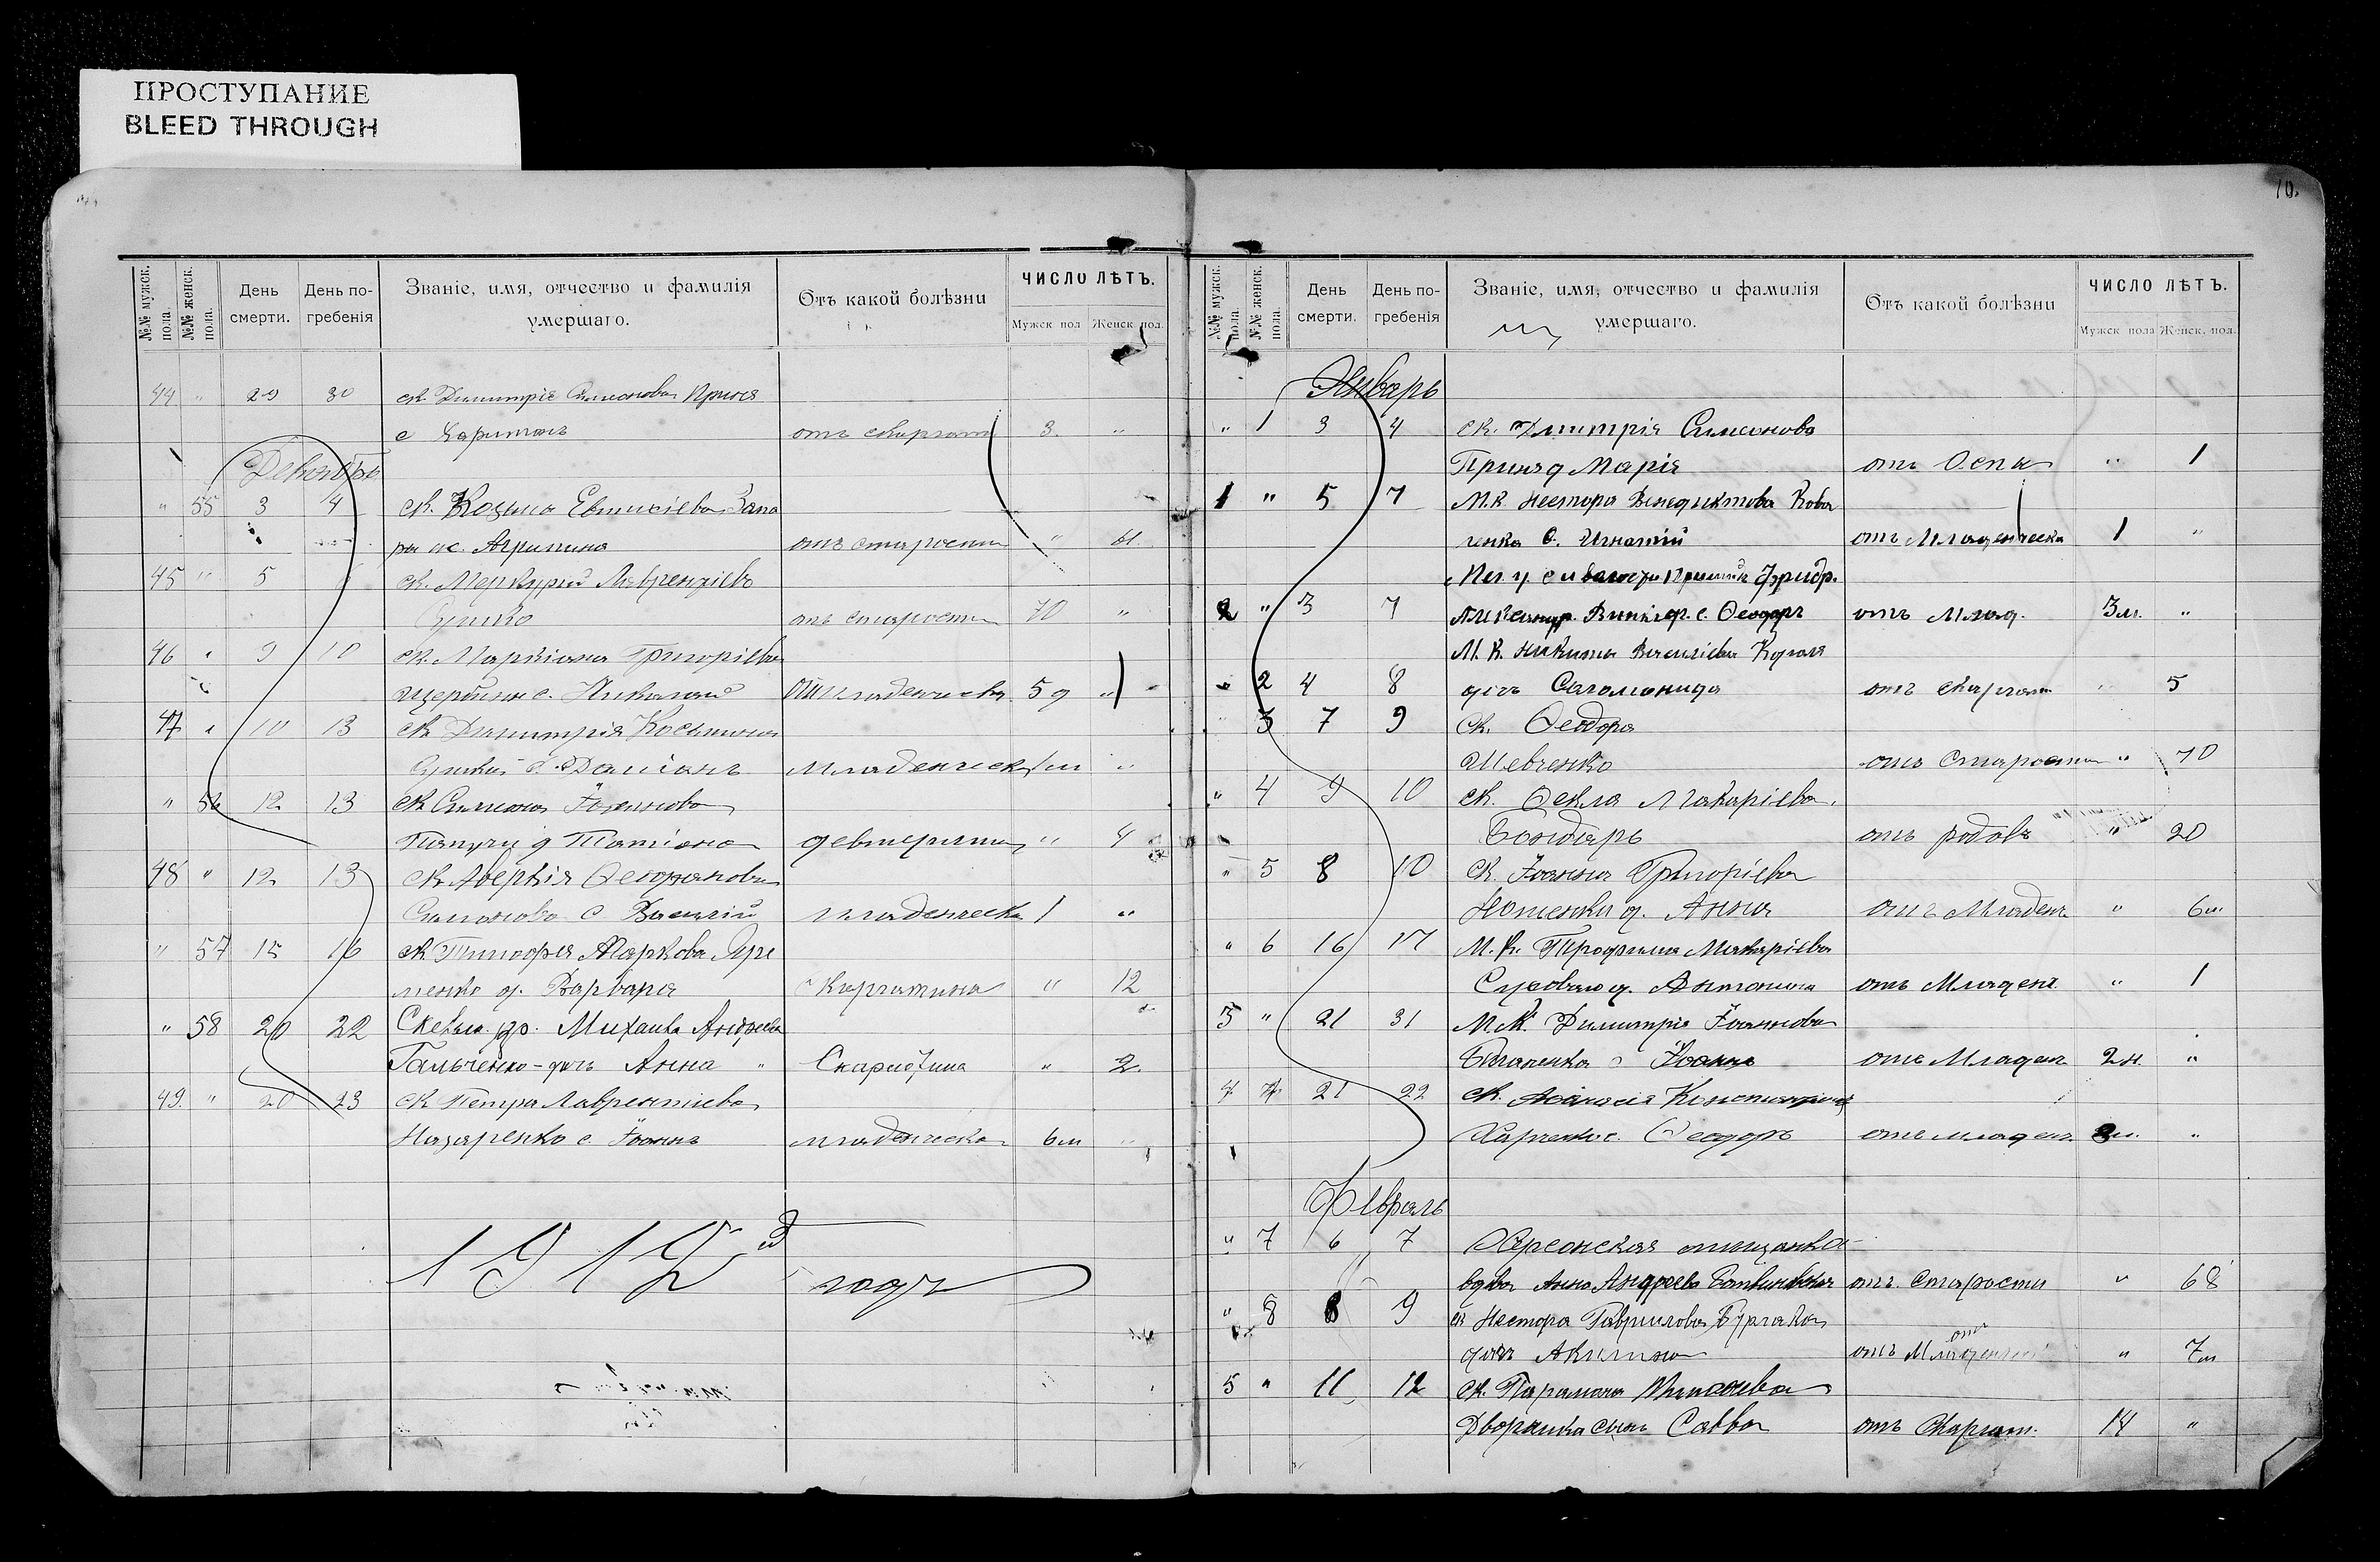 ПРОСТУПАНИЕ
BLEED THROUGH
№№ мужск. пола. №№ женск. пола. День смерти. День погребенія Званіе, имя, отчество и фамилія умершаго. Отъ какой болѣзни ЧИСЛО ЛѢТЪ. Мужск пол Женск. пол.
44 " 29 30 ск. Димитрія Симонова Приня
с Харитонъ отъ скарлат 3. "
Декабрь
" 55 3 4 ск. Козьма Евтихіева Запа
ры ж. Агрипина отъ старости " 61.
45 " 5 ск. Меркурій Лаврентіевъ
Сушко отъ старости 70 "
46 " 9 10 ск. Маркіана Григоріева
Щербины с. Николай младенческа 5д "
47 " 10 13 ск Димитрія Косьмина
Сушки с. Даміанъ младенческ 1м "
" 56 12 13 ск Симона Іоаннова
д Татіана девтерита " 4
48 " 12 13 ск Аверкія Феофанова
Симонова с Василій младенческа 1 "
" 57 15 16 ск Тимофея Маркова Яре
менко д. Варвара Скарлатина " 12
" 58 20 22 Михаила Андреева
Гальченко - дочь Анна Скарлотина " 2
49. " 20 23 ск Петра Лаврентіева
Назаренко с. Іоаннъ младенческа 6м "
1912 3
годъ
10.
№№ мужск. пола. №№ женск. пола. День смерти. День погребенія Званіе, имя, отчество и фамилія умершаго. Отъ какой болѣзни ЧИСЛО ЛѢТЪ. Мужск пола Женск. пол.
Январь
" 1 3 4 ск. Дмитрія Симонова
Приня д Марія отъ Оспы " 1
1 " 5 7 М.к. Нестора Венедиктова Кова
ленка с. Игнатій отъ Младенческа 1 "
2 " 3 7 Александр. с. Феодоръ отъ Млад. 3м. "
М. к. Никиты Василіева Коваля
" 2 4 8 дочь Саломонида отъ скарлат " 5
" 3 7 9 ск. Феодора
Шевченко отъ Старости " 70
" 4 9 10 ск. Фекла Макаріева
Бондарь отъ родовъ " 20
" 5 8 10 ск. Іоанна Григоріева
д. Анна отъ Младенч " 6м.
" 6 16 17 М. к. Трофима Макаріева
Суховаго д. Антонина отъ Младенч " 1
3 " 21 31 М.к. Димитрія Іоаннова
с Іоаннъ отъ Младен 2н. "
4 " 21 22 ск. Афанасія Константинов
Харченко с. Феодоръ отъ младен. м. "
Февраль
" 7 6 7 Херсонская мещанка
вдова Анна Андреева отъ Старости " 68
" 8 8 9 ск Нестора Гавриилова Бурлака
дочь Акилина отъ Младенческ " 7м
5 " 11 12 ск. Парамона
Дворника сынъ Савва отъ Скарлат. 14 "